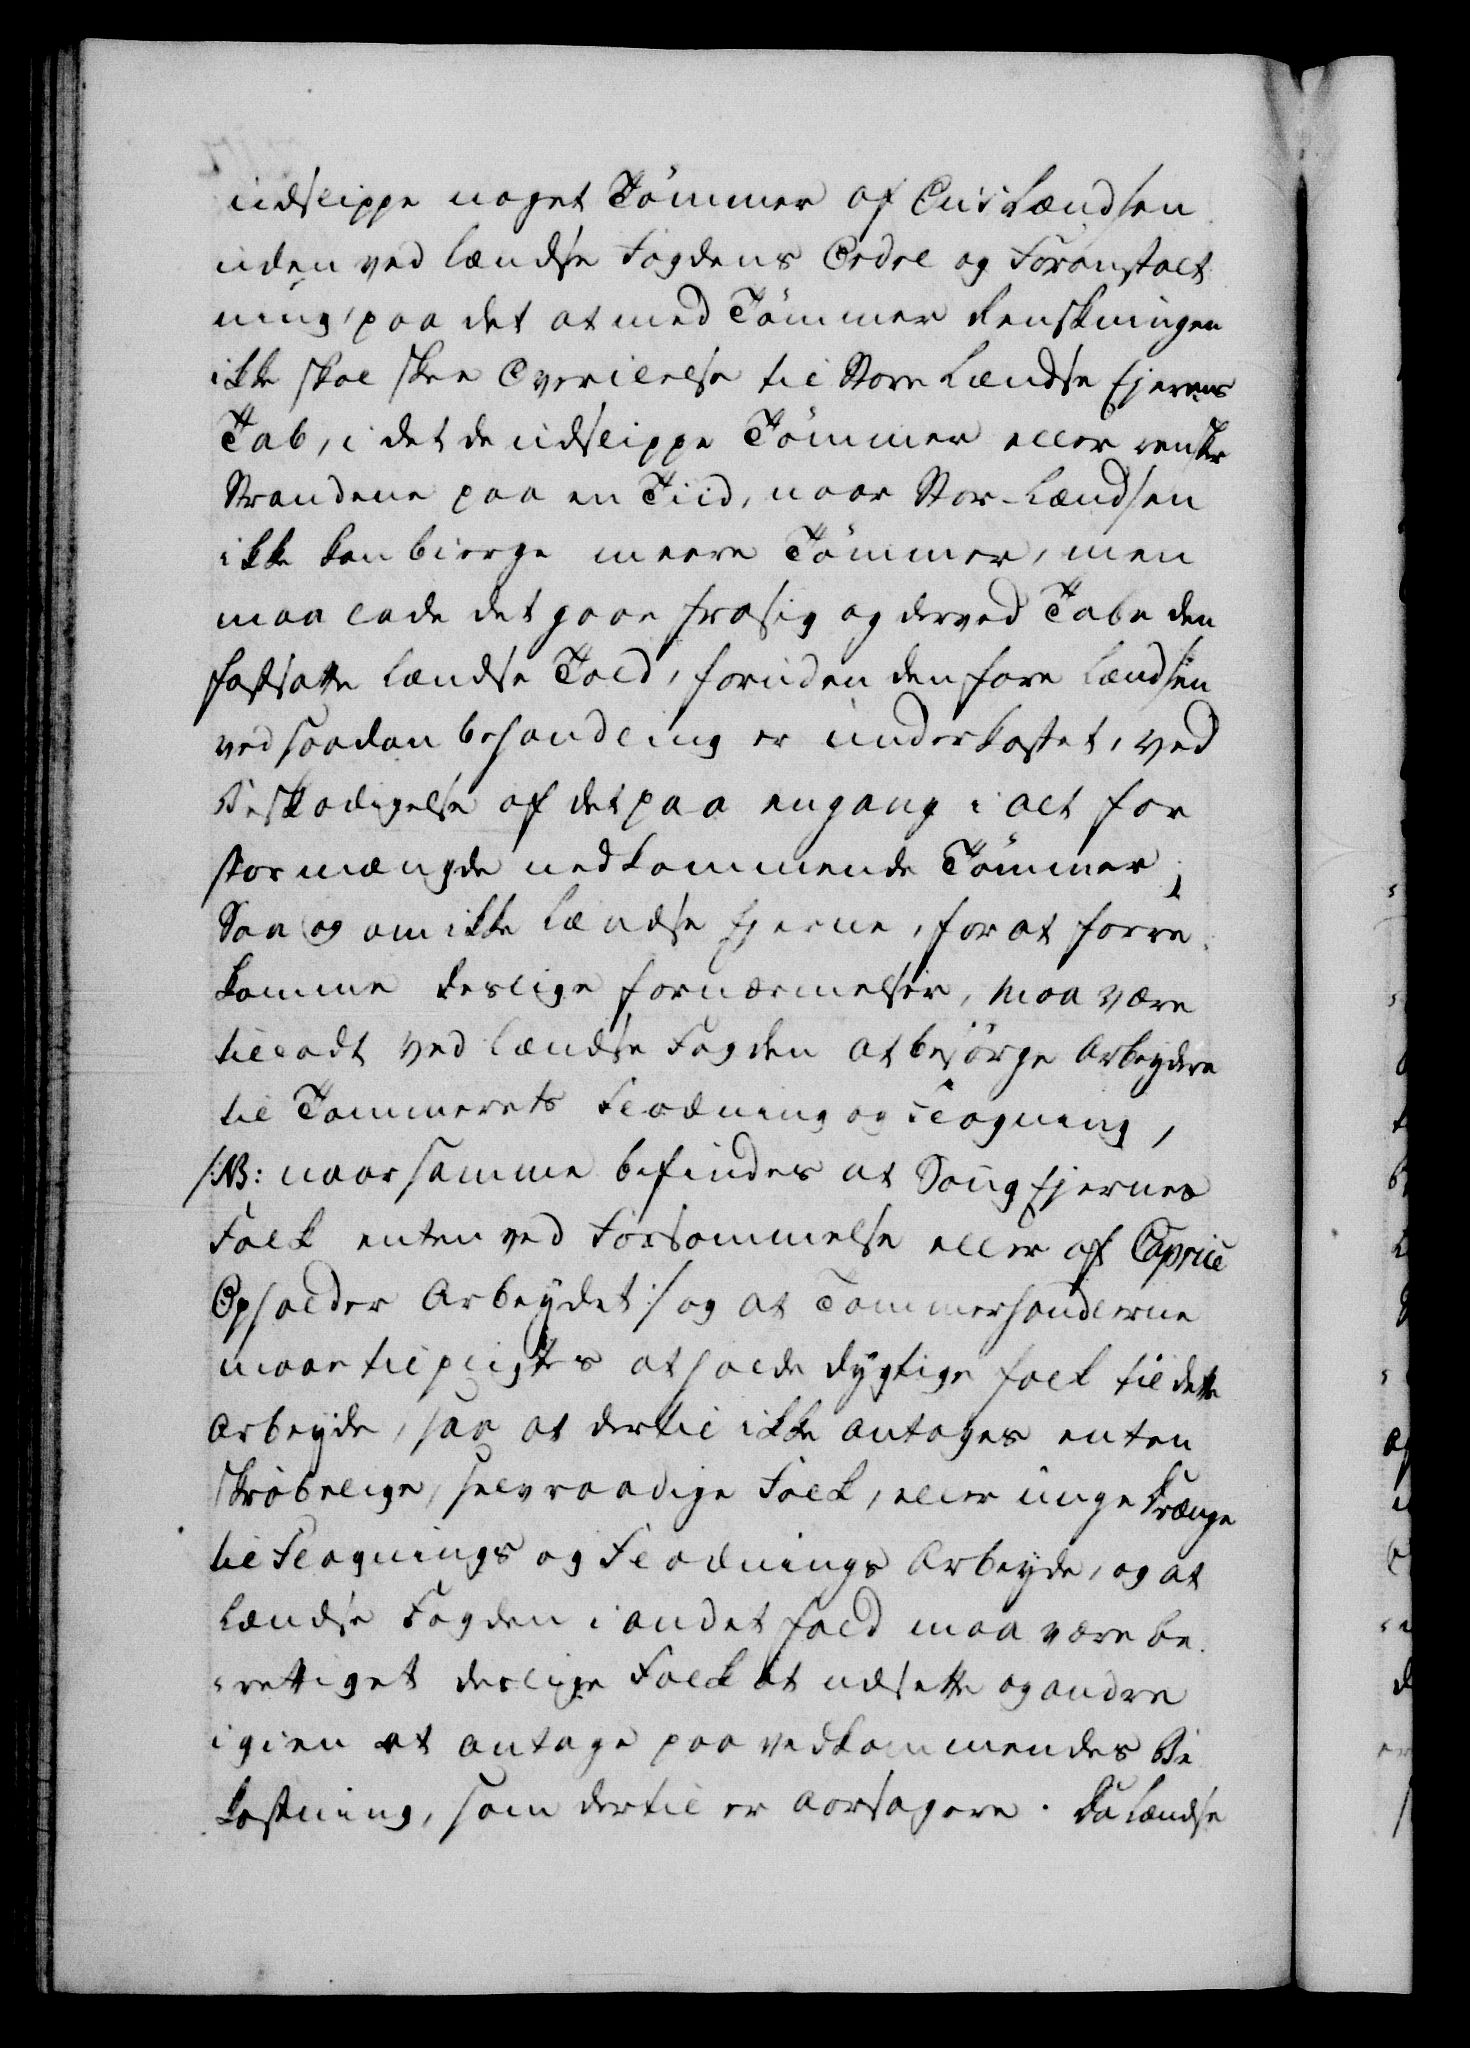 udslippe noget Tömmer af Cuslændsen
uden ved Lændse Fogdens Ordre og Foranstalt
ning, paa det at med Tömmer Renskningen
ikke skal skee Overilelse til Store Lændse Ejernes
Tab, i det de udslippe Tömmer eller renske
Strandene paa en Tiid, naar Stor-Lændsen
ikke kan bierge meere Tömmer, men
maa lade det gaae fra sig og derved Tabe den
fastsatte Lændse Told, foruden den fare Lændsen
ved saadan behandling er underkastet, ved
Beskadigelse af det paa engang i alt for
stor mængde nedkommende Tömmer;
Saa og om ikke Lændse Ejerne, for at forre
komme deslige fornærmelser, maa være
tilladt ved Lændse Fogden at besörge Arbeydere
til Tømmerets Flødning og Flaagning,
/:NB: naar samme befindes at Saug Ejernes
Folk enten ved Forsømmelse eller af Caprice
Opholder Arbeydet:/ og at Tømmerhandlerne
maae tilpligtes at holde dygtige folk til dette
Arbeyde, saa at dertil ikke antages enten
skrøbelige, selvraadige Folk, eller unge Drænge
til Flaagnings og Flødnings Arbeyde, og at
Lændse Fogden i andet fald maa være be
rettiget deslige Folk at udsætte og andre
igien at antage paa vedkommendes Be
kostning, som dertil er Aarsagere. Da Lændse